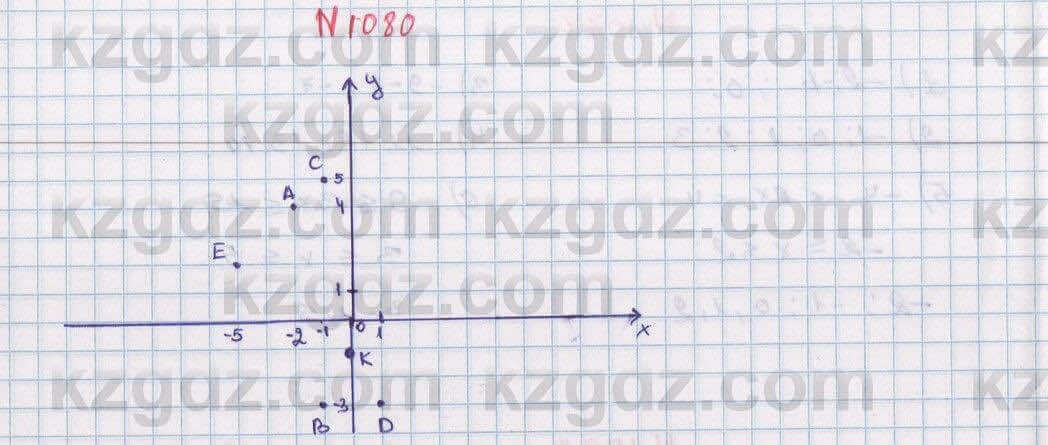 N 1080
kzgdz.com kzgdz.com kz
y
kzgdz.com
C 5
A 4
kzgdz.com kzgdz.com kz
E
1
kzgdz.com
-5 -2 -1 0 1 x
K
kzgdz.com kzgdz.com kz
B -3 D